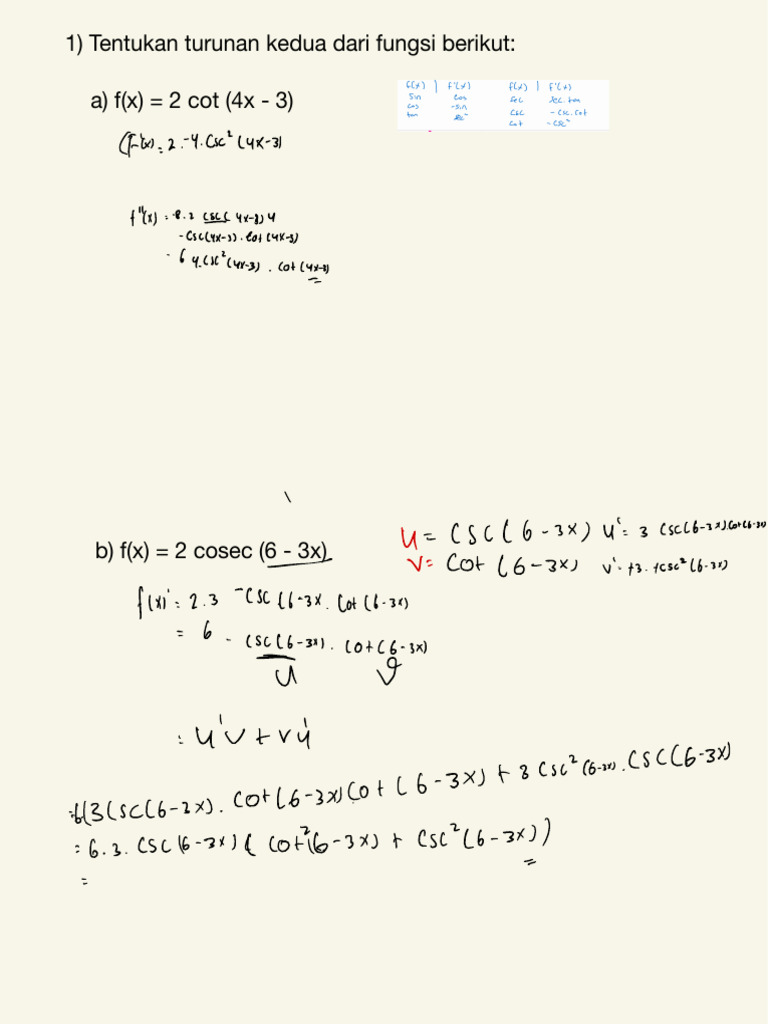 1) Tentukan turunan kedua dari fungsi berikut:
a) f(x) = 2 cot (4x - 3)
f(x) | f'(x) f(x) | f'(x)
sin cos sec sec.tan
cos -sin csc -csc.cot
tan sec² cot -csc²
f'(x) = 2 . -4 . csc² (4x-3)
f''(x) = -8.2 csc( 4x-3) 4
-csc(4x-3) . cot (4x-3)
= 64.csc² (4x-3) . cot (4x-3)
b) f(x) = 2 cosec (6 - 3x)
u = csc (6 - 3x) u' = 3 csc(6-3x).cot(6-3x)
v = cot (6-3x) v' = +3 . +csc² (6-3x)
f(x)' = 2.3 -csc (6-3x . cot (6-3x)
= 6 - csc(6-3x) . cot(6-3x)
u v
= u'v + v'u
=6(3(sc(6-3x) . cot(6-3x)cot (6-3x) + 3 csc² (6-3x) . csc(6-3x)
= 6.3. csc (6-3x) ( cot²(6-3x) + csc² (6-3x))
=